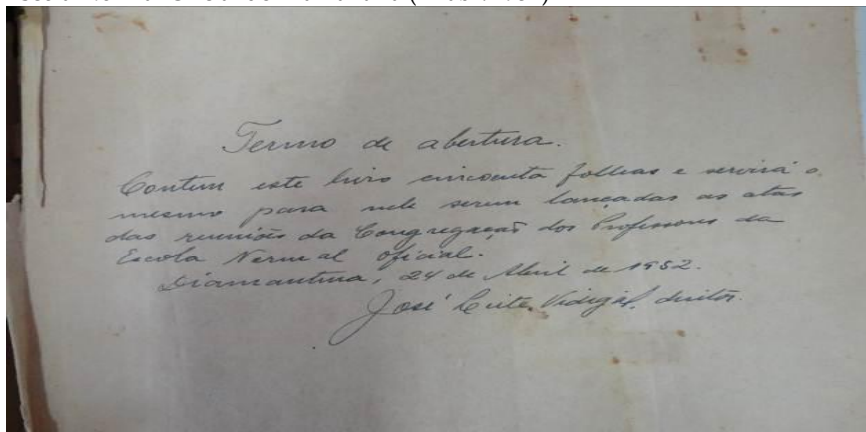 Termo de abertura.
Contem este livro cincoenta folhas e servirá o
mesmo para nele serem lançadas as atas
das reuniões da Congregação dos Professores da
Escola Normal oficial.
Diamantina, 24 de Abril de 1952.
José Leite Vidigal, diretor.